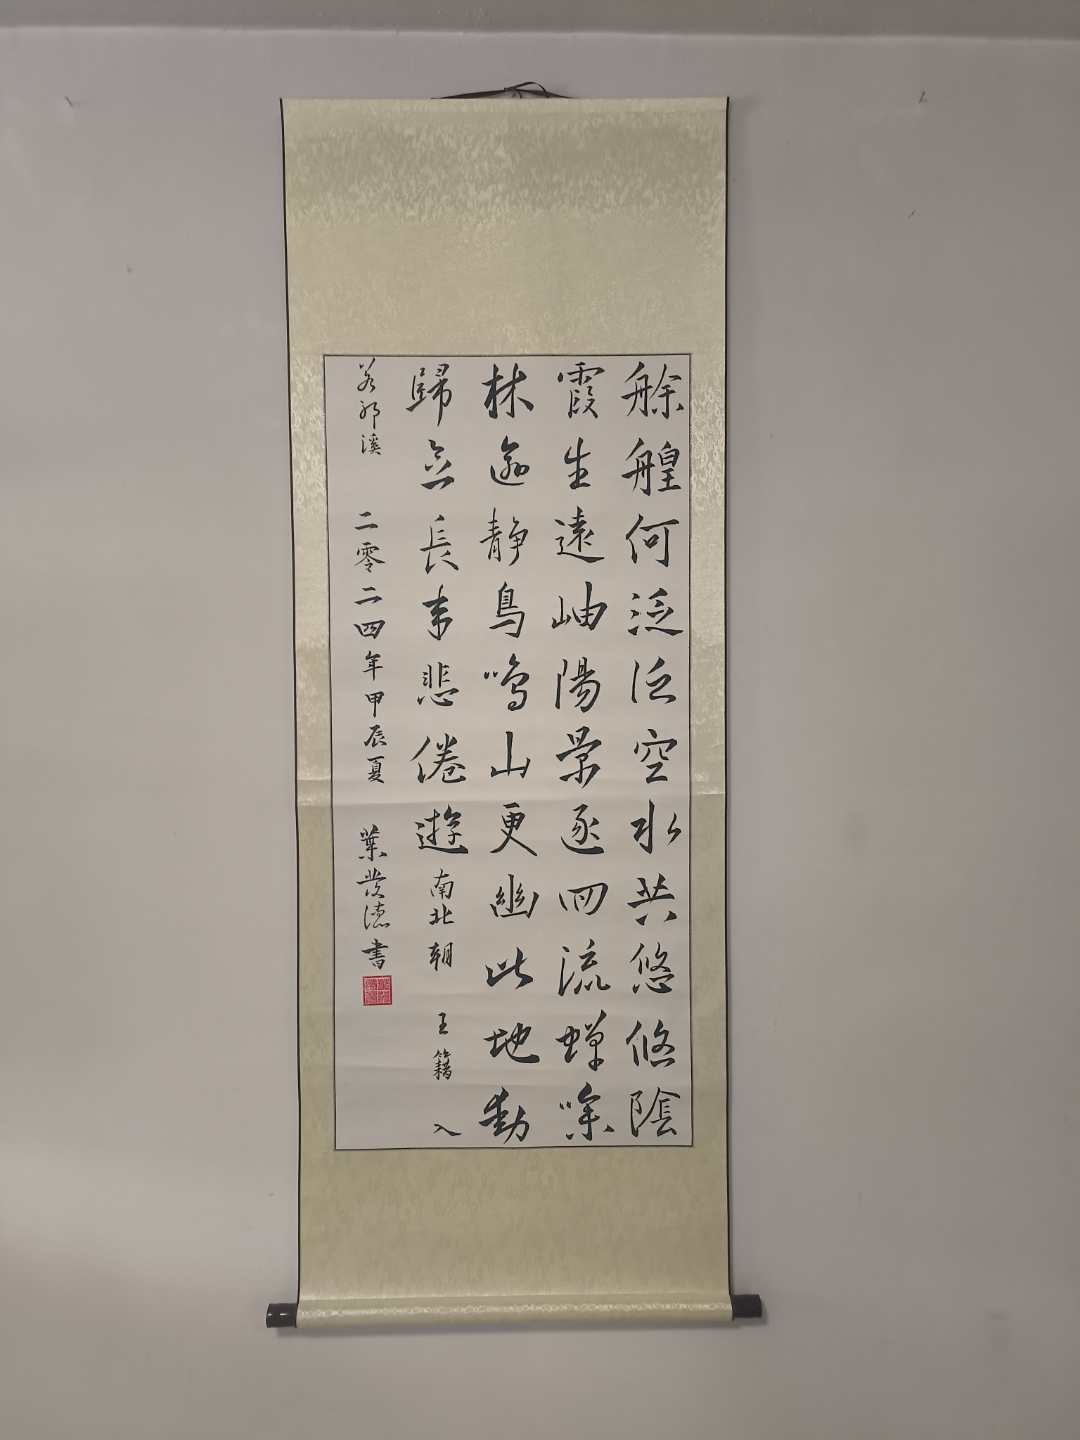 艅艎何泛泛空水共悠悠陰
霞生遠岫陽景逐回流蟬噪
林逾静鳥鳴山更幽此地動
歸念長年悲倦遊 南北朝 王籍 入
若邪溪 二零二四年甲辰夏 葉發德書